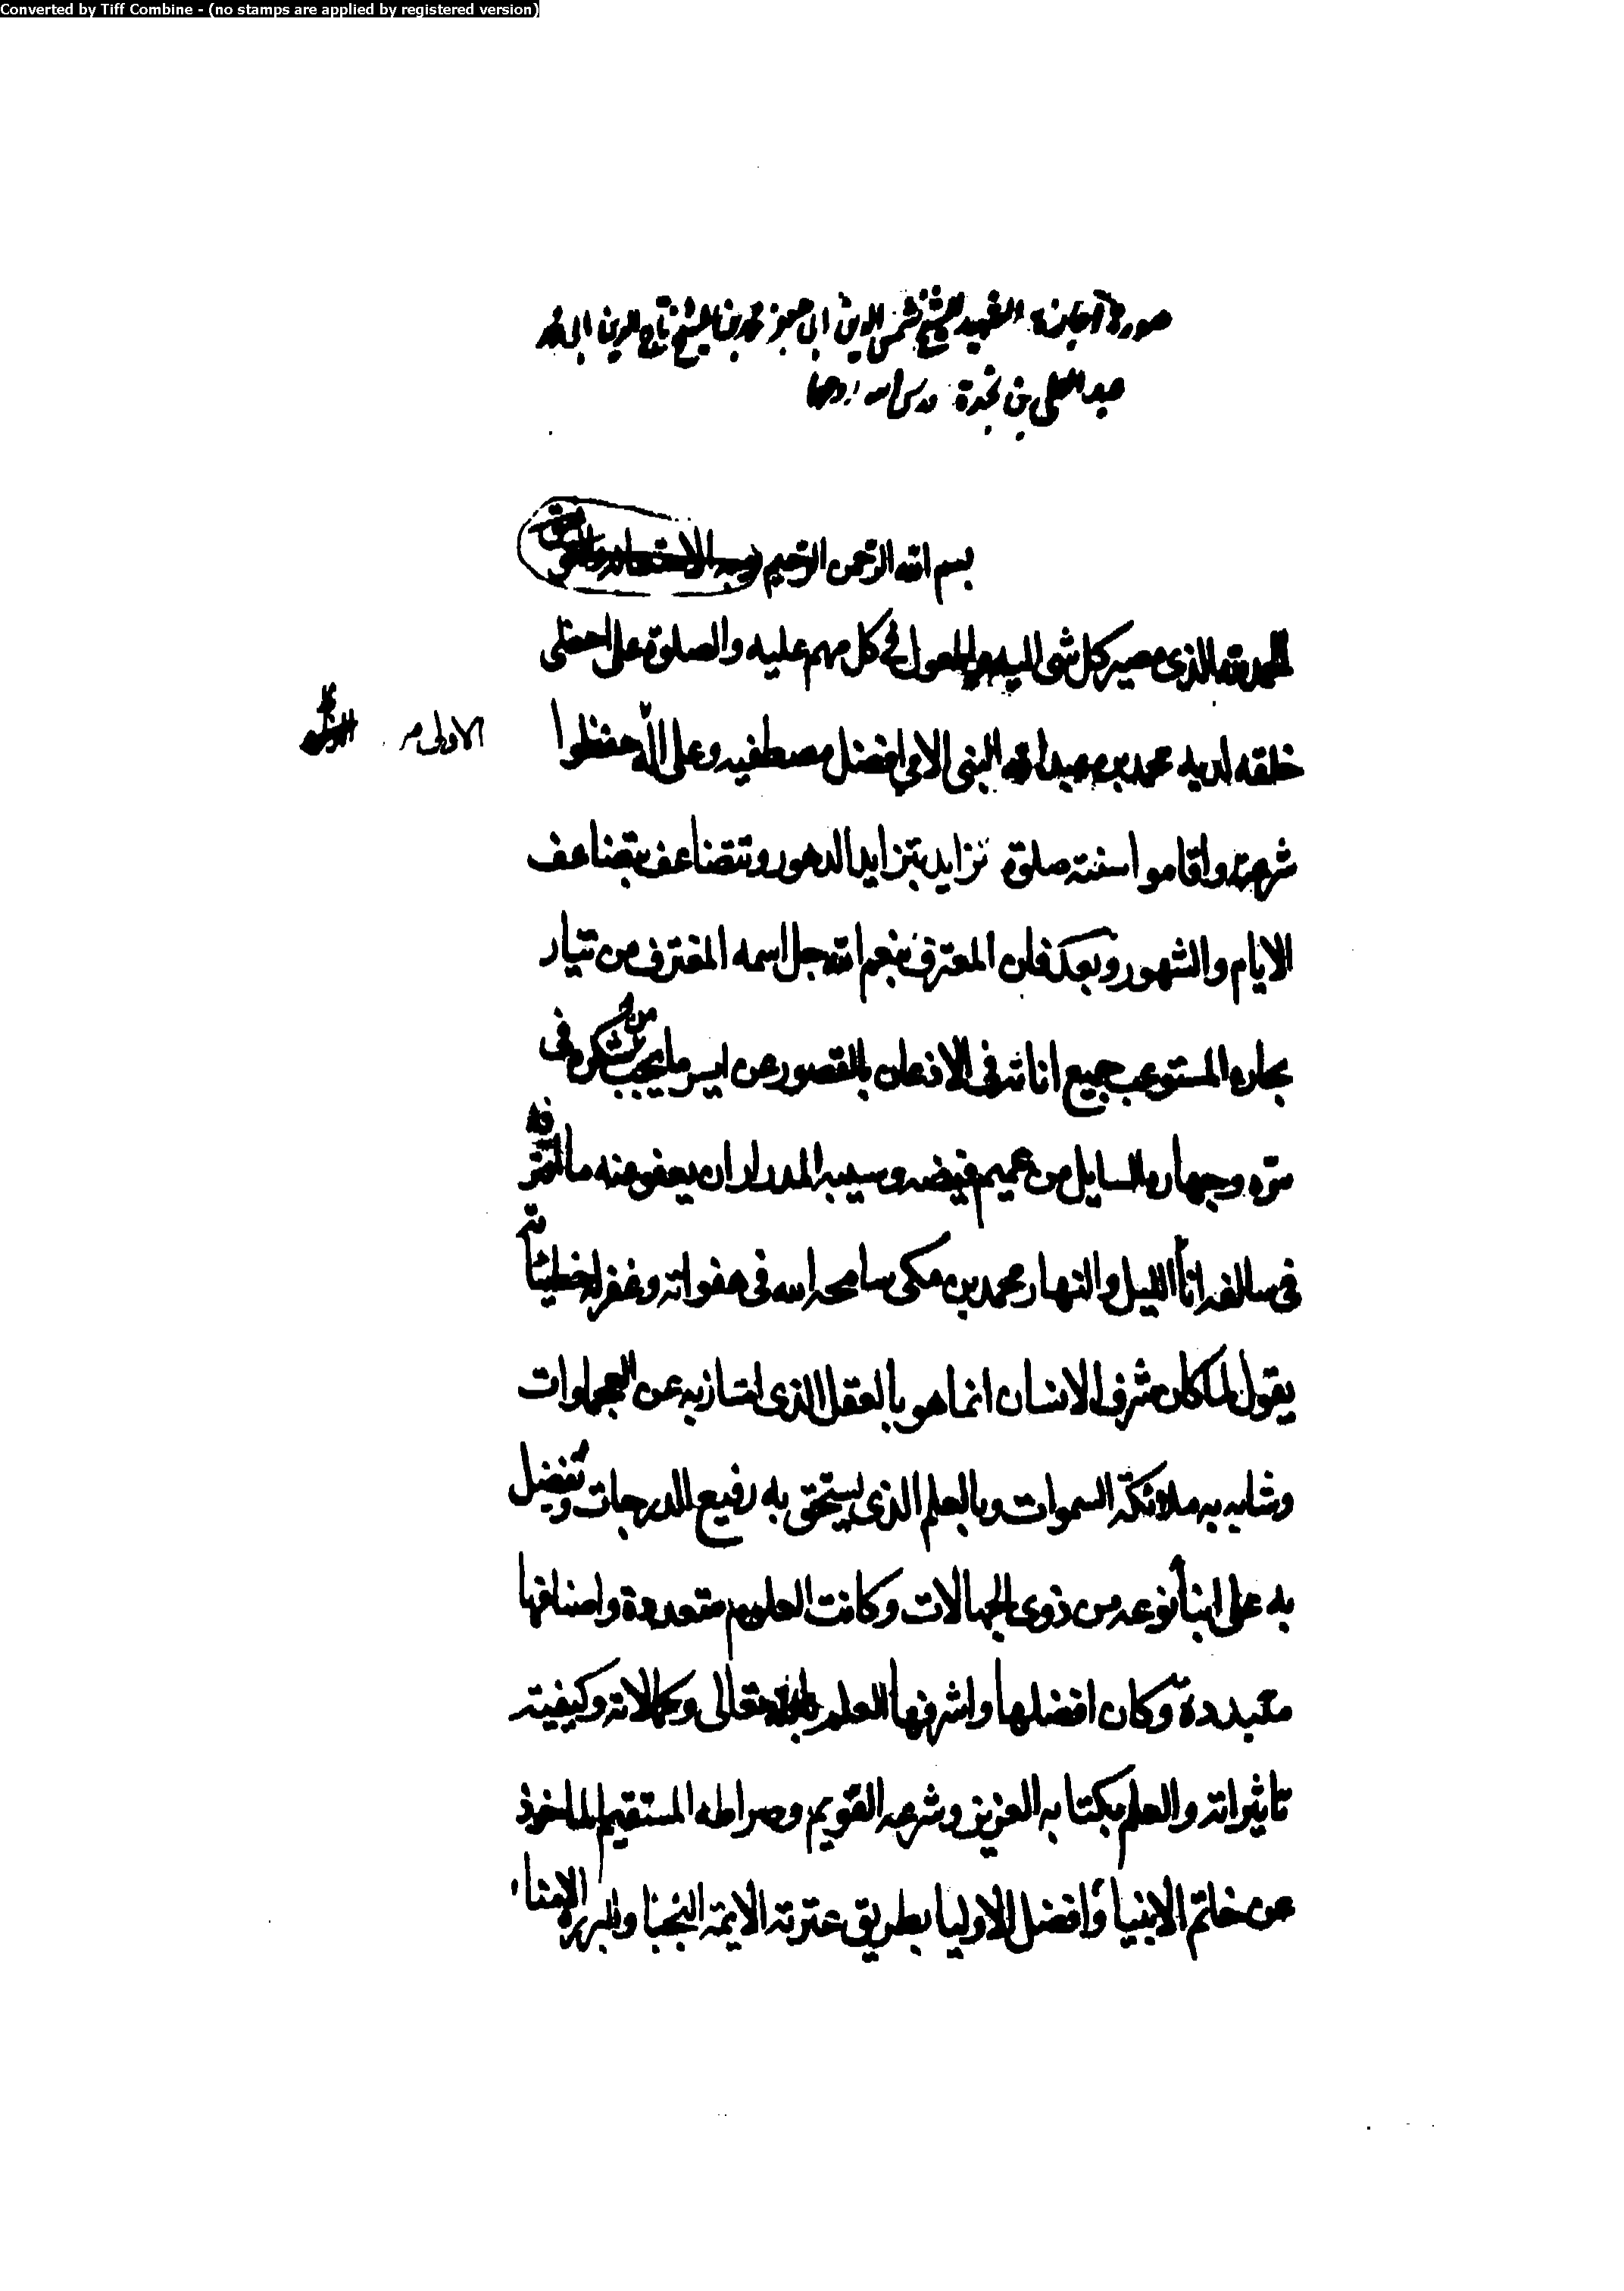 Converted by Tiff Combine - (no stamps are applied by registered version)
صورة اجازة الشهيد للشيخ شمس الدين ابى جعفر محمد بن الشيخ تاج الدين ابى محمد
عبد العلى بن نجدة قدس الله روحهما
بسم الله الرحمن الرحيم
الحمد لله الذى مصير كل شى اليه والمعول فى كل مهم عليه والصلوة على احظى
خلقه لديه محمد بن عبد الله النبى الامى افضل مصطفيه وعلى اله حفظوا
الاولى
شرعه واقاموا سنته صلوة تزايد بتزايد الدهور وتتضاعف بتضاعف
الايام والشهور وبعد فان المعترف بنعم الله جل اسمه المغترف من تيار
بحاره المستوعب جميع اناته فى الاذعان بالقصور عن ايسر ما يجب من شكره فى
سره وجهاره السايل من عميم فيضه وسيبه المدرار ان يعفو عنه ما اقترفه
فى سالف اناء الليل والنهار محمد بن مكى سامحه الله فى هفواته وغفر له خطيئاته
يقول لما كان شرف الانسان انما هو بالعقل الذى امتاز به عن العجماوات
وشابه به ملائكة السموات وبالعلم الذى يستحق به رفيع الدرجات وتفضل
به على ابناء نوعه من ذوى الجهالات وكانت العلوم متعددة واصنافها
متبددة وكان افضلها واشرفها العلم بالله تعالى وكمالاته وكيفيته
تاثيراته والعلم بكتابه العزيز وشرعه القويم وصراطه المستقيم الماخوذ
عن خاتم الانبياء وافضل الاوليا بطريق عترته الايمة النجبا والبررة الامناء